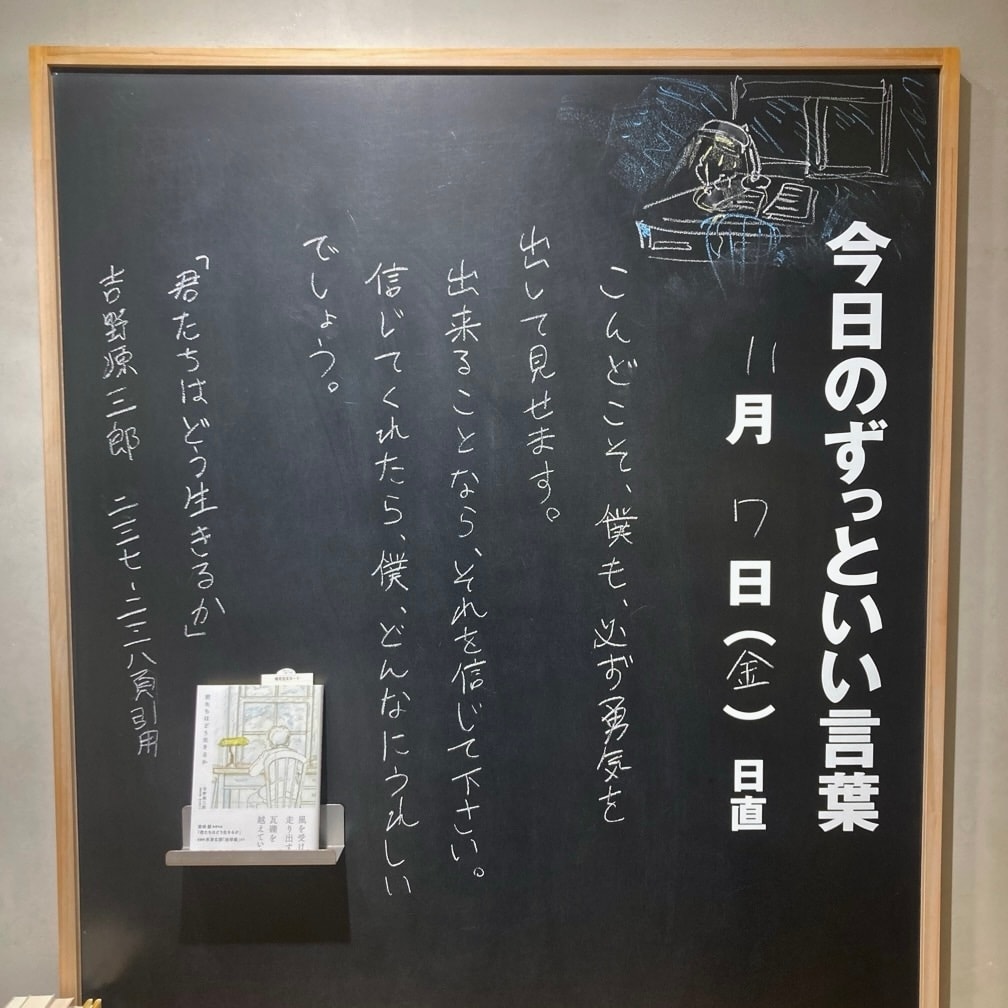 今日のずっといい言葉
11月7日(金)日直
こんどこそ、僕も、必ず勇気を
出して見せます。
出来ることなら、それを信じて下さい。
信じてくれたら、僕、どんなにうれしい
でしょう。
「君たちはどう生きるか」
吉野源三郎 二三七~二三八頁引用
君たちはどう生きるか
風を受け
走り出す
瓦礫を
越えてい